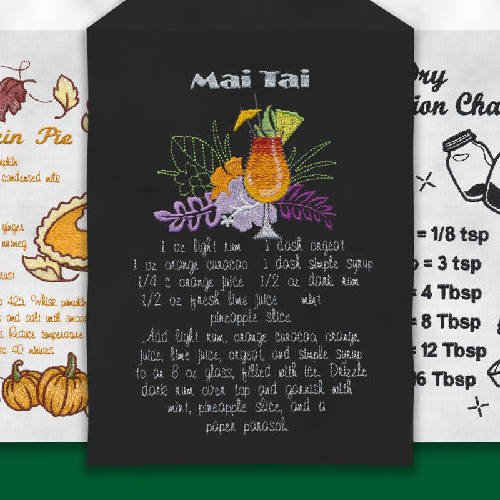 Mai Tai
1 oz light rum 1 dash orgeat
1 oz orange curacao 1 dash simple syrup
1/4 c orange juice 1/2 oz dark rum
1/2 oz fresh lime juice mint
pineapple slice
Add light rum, orange curacao, orange
juice, lime juice, orgeat, and simple syrup
to an 8 oz glass, filled with ice. Drizzle
dark rum over top and garnish with
mint, pineapple slice, and a
paper parasol.
Pie
condensed milk
ginger
nutmeg
425. Whisk pumpkin
and salt until smooth
Reduce temperature
40 minutes.
ry
ion Cha
= 1/8 tsp
= 3 tsp
= 4 Tbsp
= 8 Tbsp
= 12 Tbsp
16 Tbsp